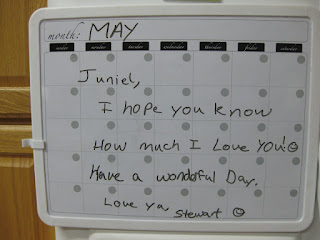 month: MAY
sunday monday tuesday wednesday thursday friday saturday
Juniel,
I hope you know
How much I Love YOU!☺
Have a wonderful Day.
Love Ya, Stewart ☺